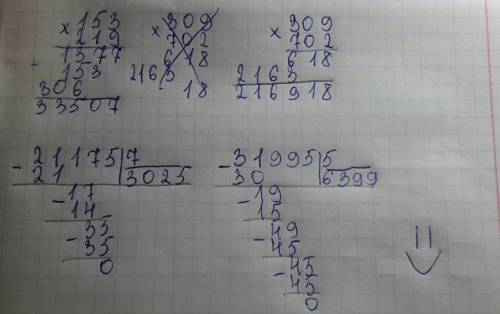 × 153
219
1377
+ 153
306
33507
× 309
702
618
2163
18
× 309
702
618
2163
216918
- 21175 | 7
21 | 3025
- 17
14
- 35
35
0
- 31995 | 5
30 | 6399
- 19
15
- 49
45
- 45
45
0